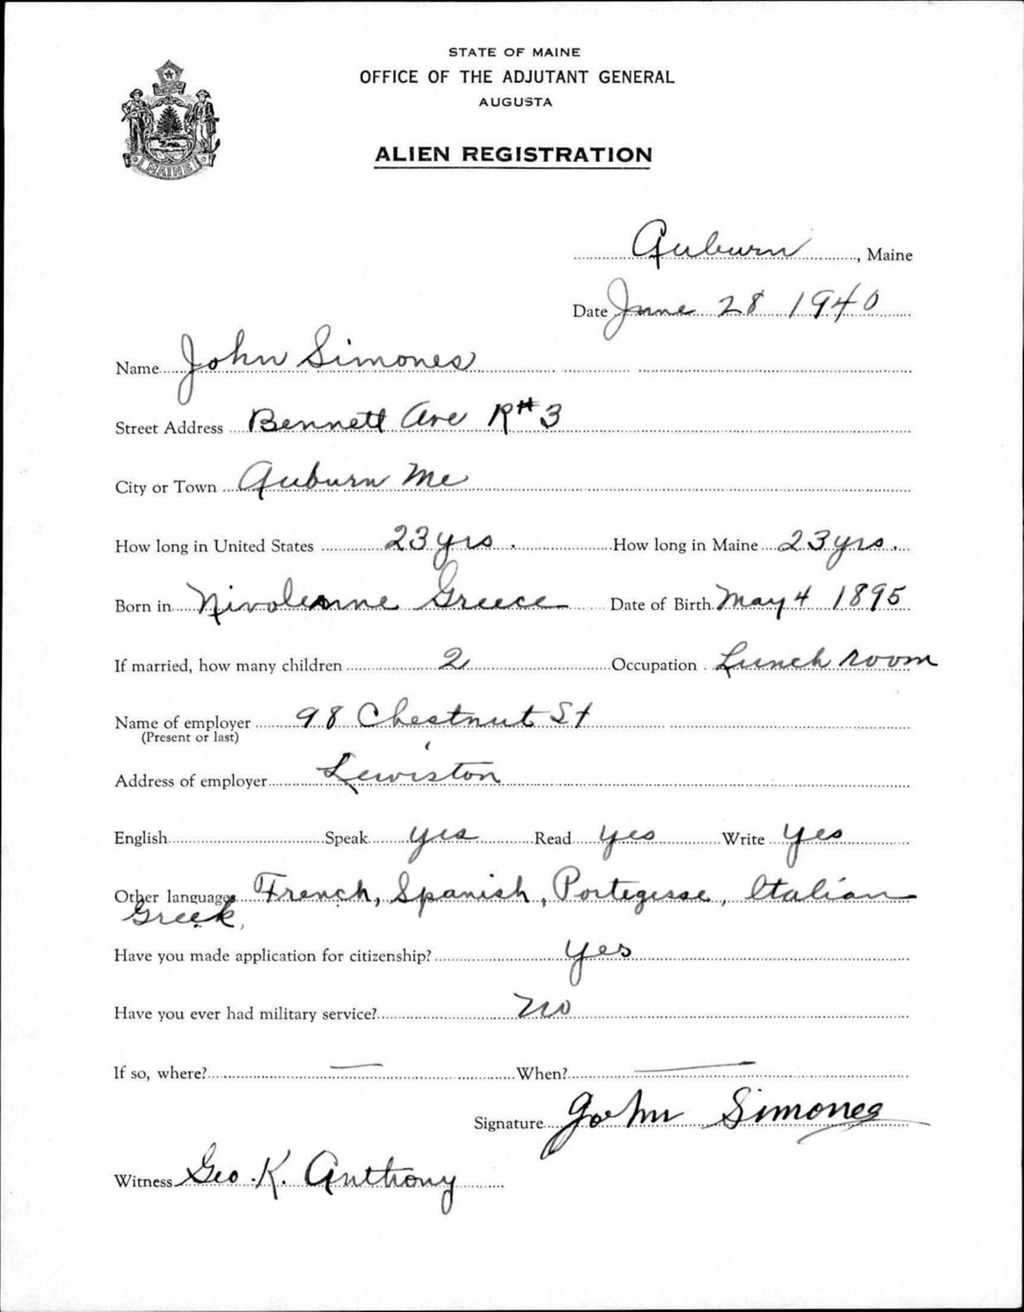 STATE OF MAINE
OFFICE OF THE ADJUTANT GENERAL
AUGUSTA
ALIEN REGISTRATION
MAINE
Auburn, Maine
Date June 28 1940
Name John Simones
Street Address Bennett Ave R#3
City or Town Auburn Me
How long in United States 23 yrs. How long in Maine 23 yrs.
Born in Greece Date of Birth May 4 1895
If married, how many children 2 Occupation Lunch room
Name of employer 98 Chestnut St
(Present or last)
Address of employer Lewiston
English Speak yes Read yes Write yes
Other languages French, Spanish, Portegesse, Italian
Greek,
Have you made application for citizenship? yes
Have you ever had military service? no
If so, where? — When? —
Signature John Simones
Witness Geo. K. Anthony